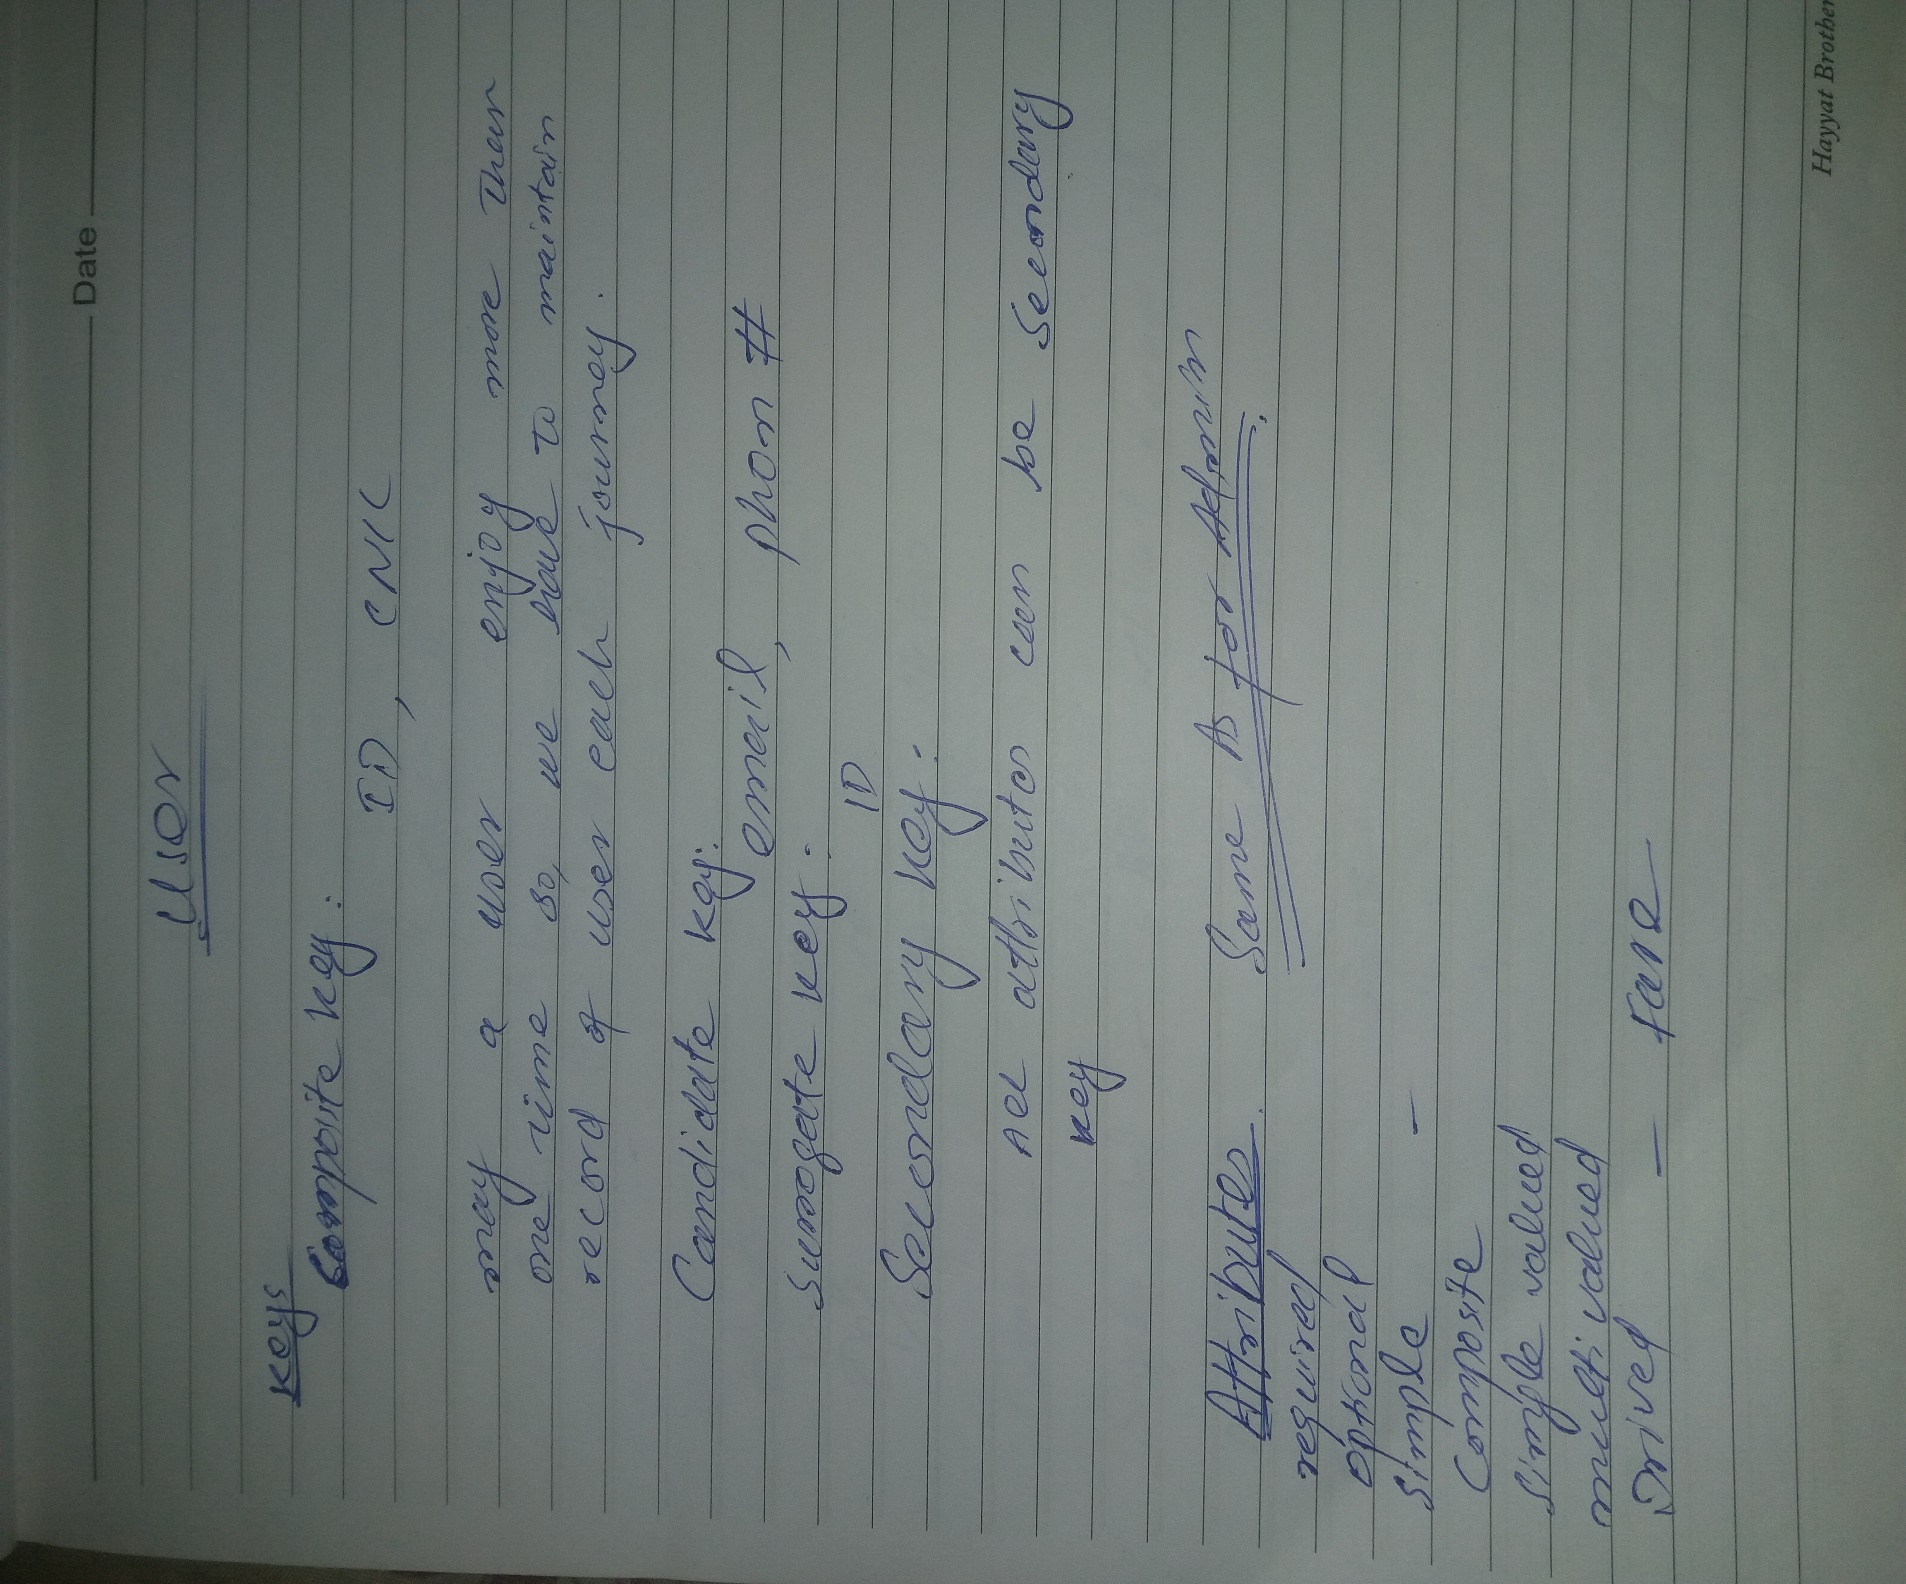 Date
User
Keys
Composite key:
ID, CNIC
may a user enjoy more then
one time so, we have to maintain
record of user each journey.
Candidate key:
email, phon #
Surrogate key:
ID
Secondary key:
All attributes can be Secondary
key
Attributes. Same As for Admin
required
optional
Simple -
Composite
Simple valued
multi valued
Drived - fare
Hayyat Brother